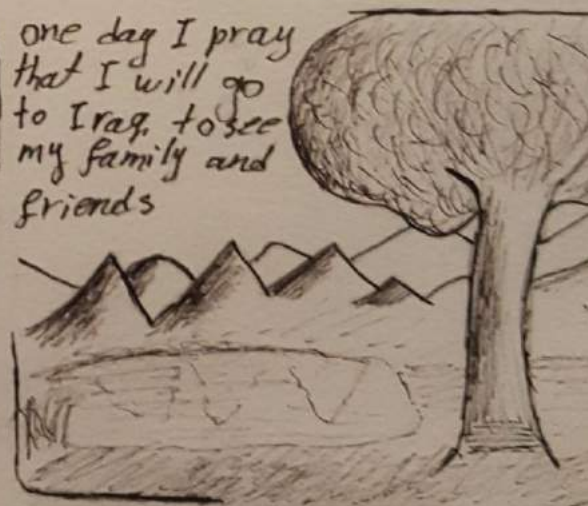 one day I pray
that I will go
to Iraq. to see
my family and
friends